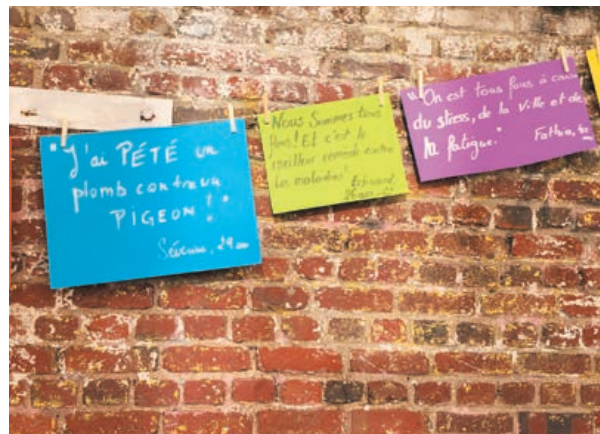 "J'ai PÉTÉ un
plomb contre un
PIGEON!"
Séverine, 29 ans
"Nous sommes tous
fous! Et c'est le
meilleur remède contre
les maladies"
Edouard,
"On est tous fous à cause
du stress, de la ville et de
la fatigue."
Fatha,